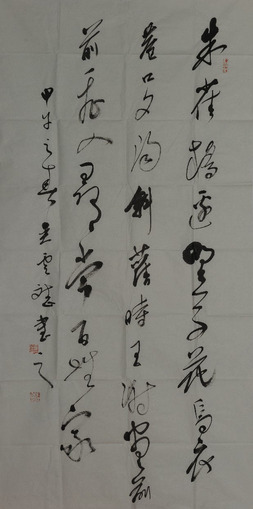 朱雀橋邊野草花烏衣
巷口夕陽斜舊時王謝堂前
燕飛入尋常百姓家
甲午之春 吳雲 書